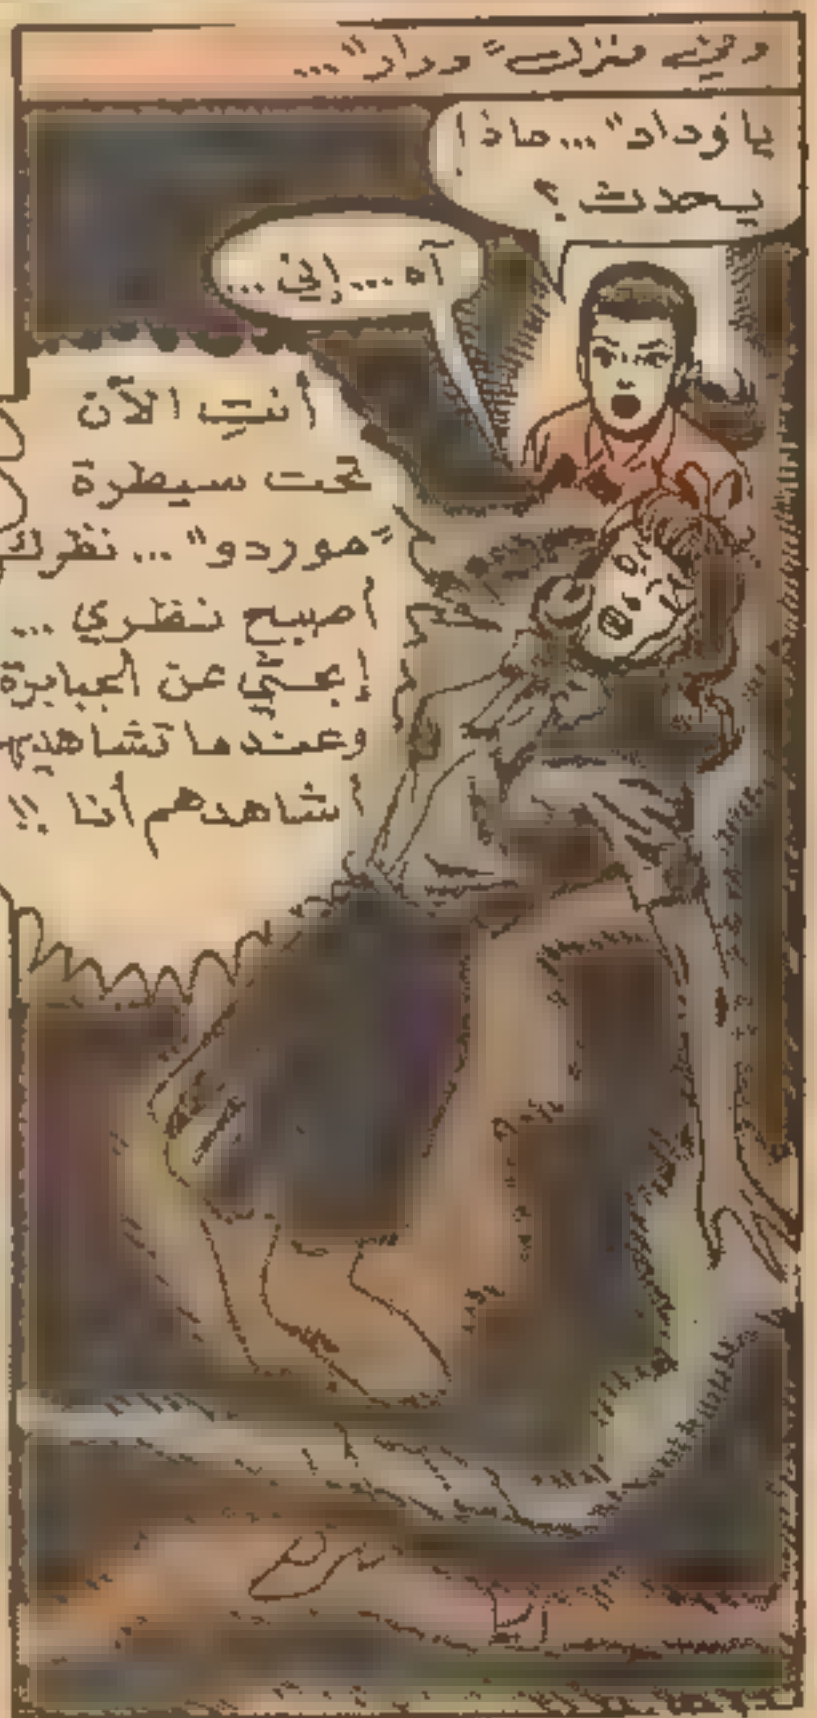 وفي منزل "وداد"...
يا "وداد"... ماذا
يحدث ؟
آه ... إني ...
أنتِ الآن
تحت سيطرة
"موردو" ... نظركِ
أصبح نظري ...
إبحثي عن الجبابرة
وعندما تشاهديهم
أشاهدهم أنا !!